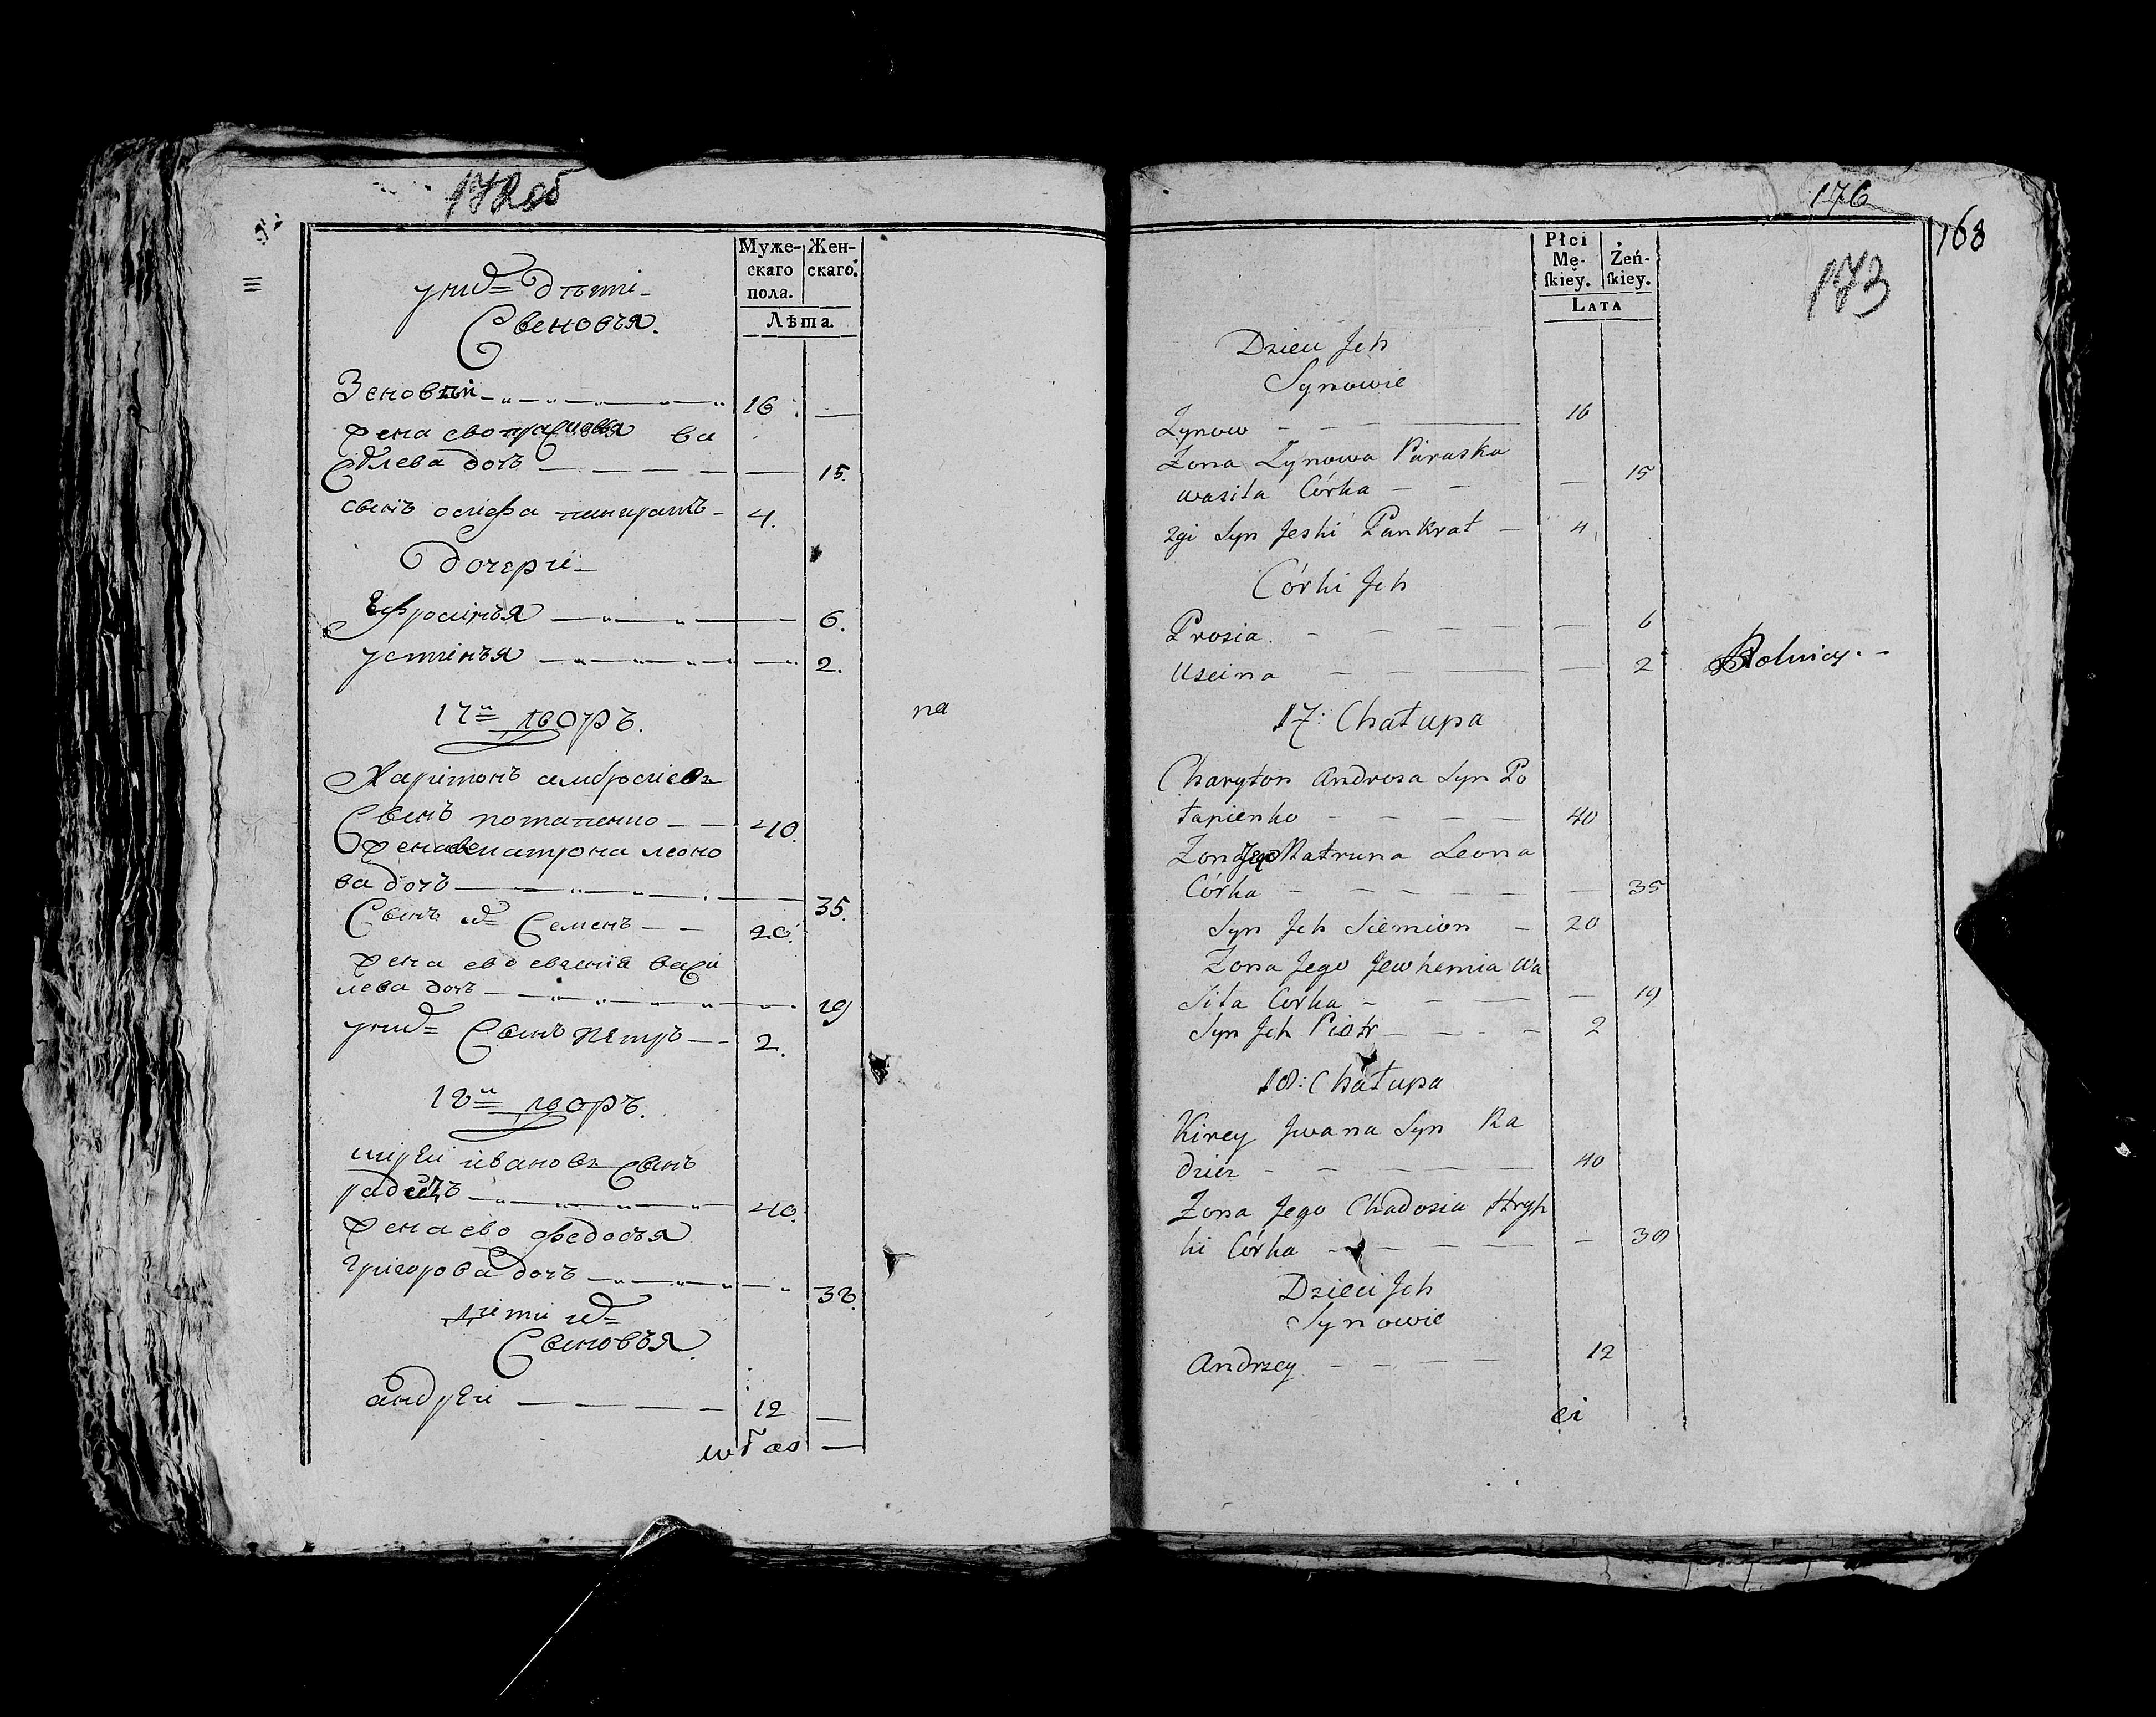 172об
Муже- Жен-
скаго скаго.
пола.
Лѣта.
у нихъ дѣти
Сыновья.
Зеновій 16
жена ево Ва
Силева дочь 15.
сынъ осиефа панкратъ 4.
дочери
Ефросинья 6.
устинья 2.
17й дворъ.
Харитонъ амбросіевъ
Сынъ потапенко 40.
жена ево матрона леоно
ва дочь 35.
Сынъ ихъ Семенъ 20.
жена ево евгенія васи
лева дочь 19
у нихъ Сынъ петръ 2.
18й дворъ.
кірѣи ивановъ Сынъ
радецъ 40.
жена ево федосья
григорова дочь 38.
дѣти ихъ
Сыновья
андрѣи 12
na
176
168
173
Płci Żeń-
Mę- skiey.
skiey.
LATA
Dzieci Jch
Synowie
Zynow 16
Zona Zynowa Paraska
wasila Córka 15
2gi Syn Jeski Pankrat 4
Córki Jch
Prosia 6
Uscina 2
Rolnicy.
17: Chałupa
Charyton Androsa Syn Po
tapienko 40
Zona Jego Matruna Leona
Córka 35
Syn Jch Siemion 20
Zona Jego Jewhemia Wa
sila Corka 19
Syn Jch Piotr 2
18: Chałupa
Kirey Jwana Syn Ra
dziec 40
Zona Jego Chadosia Hryh
ki Córka 38
Dzieci Jch
Synowie
Andrzey 12
ei